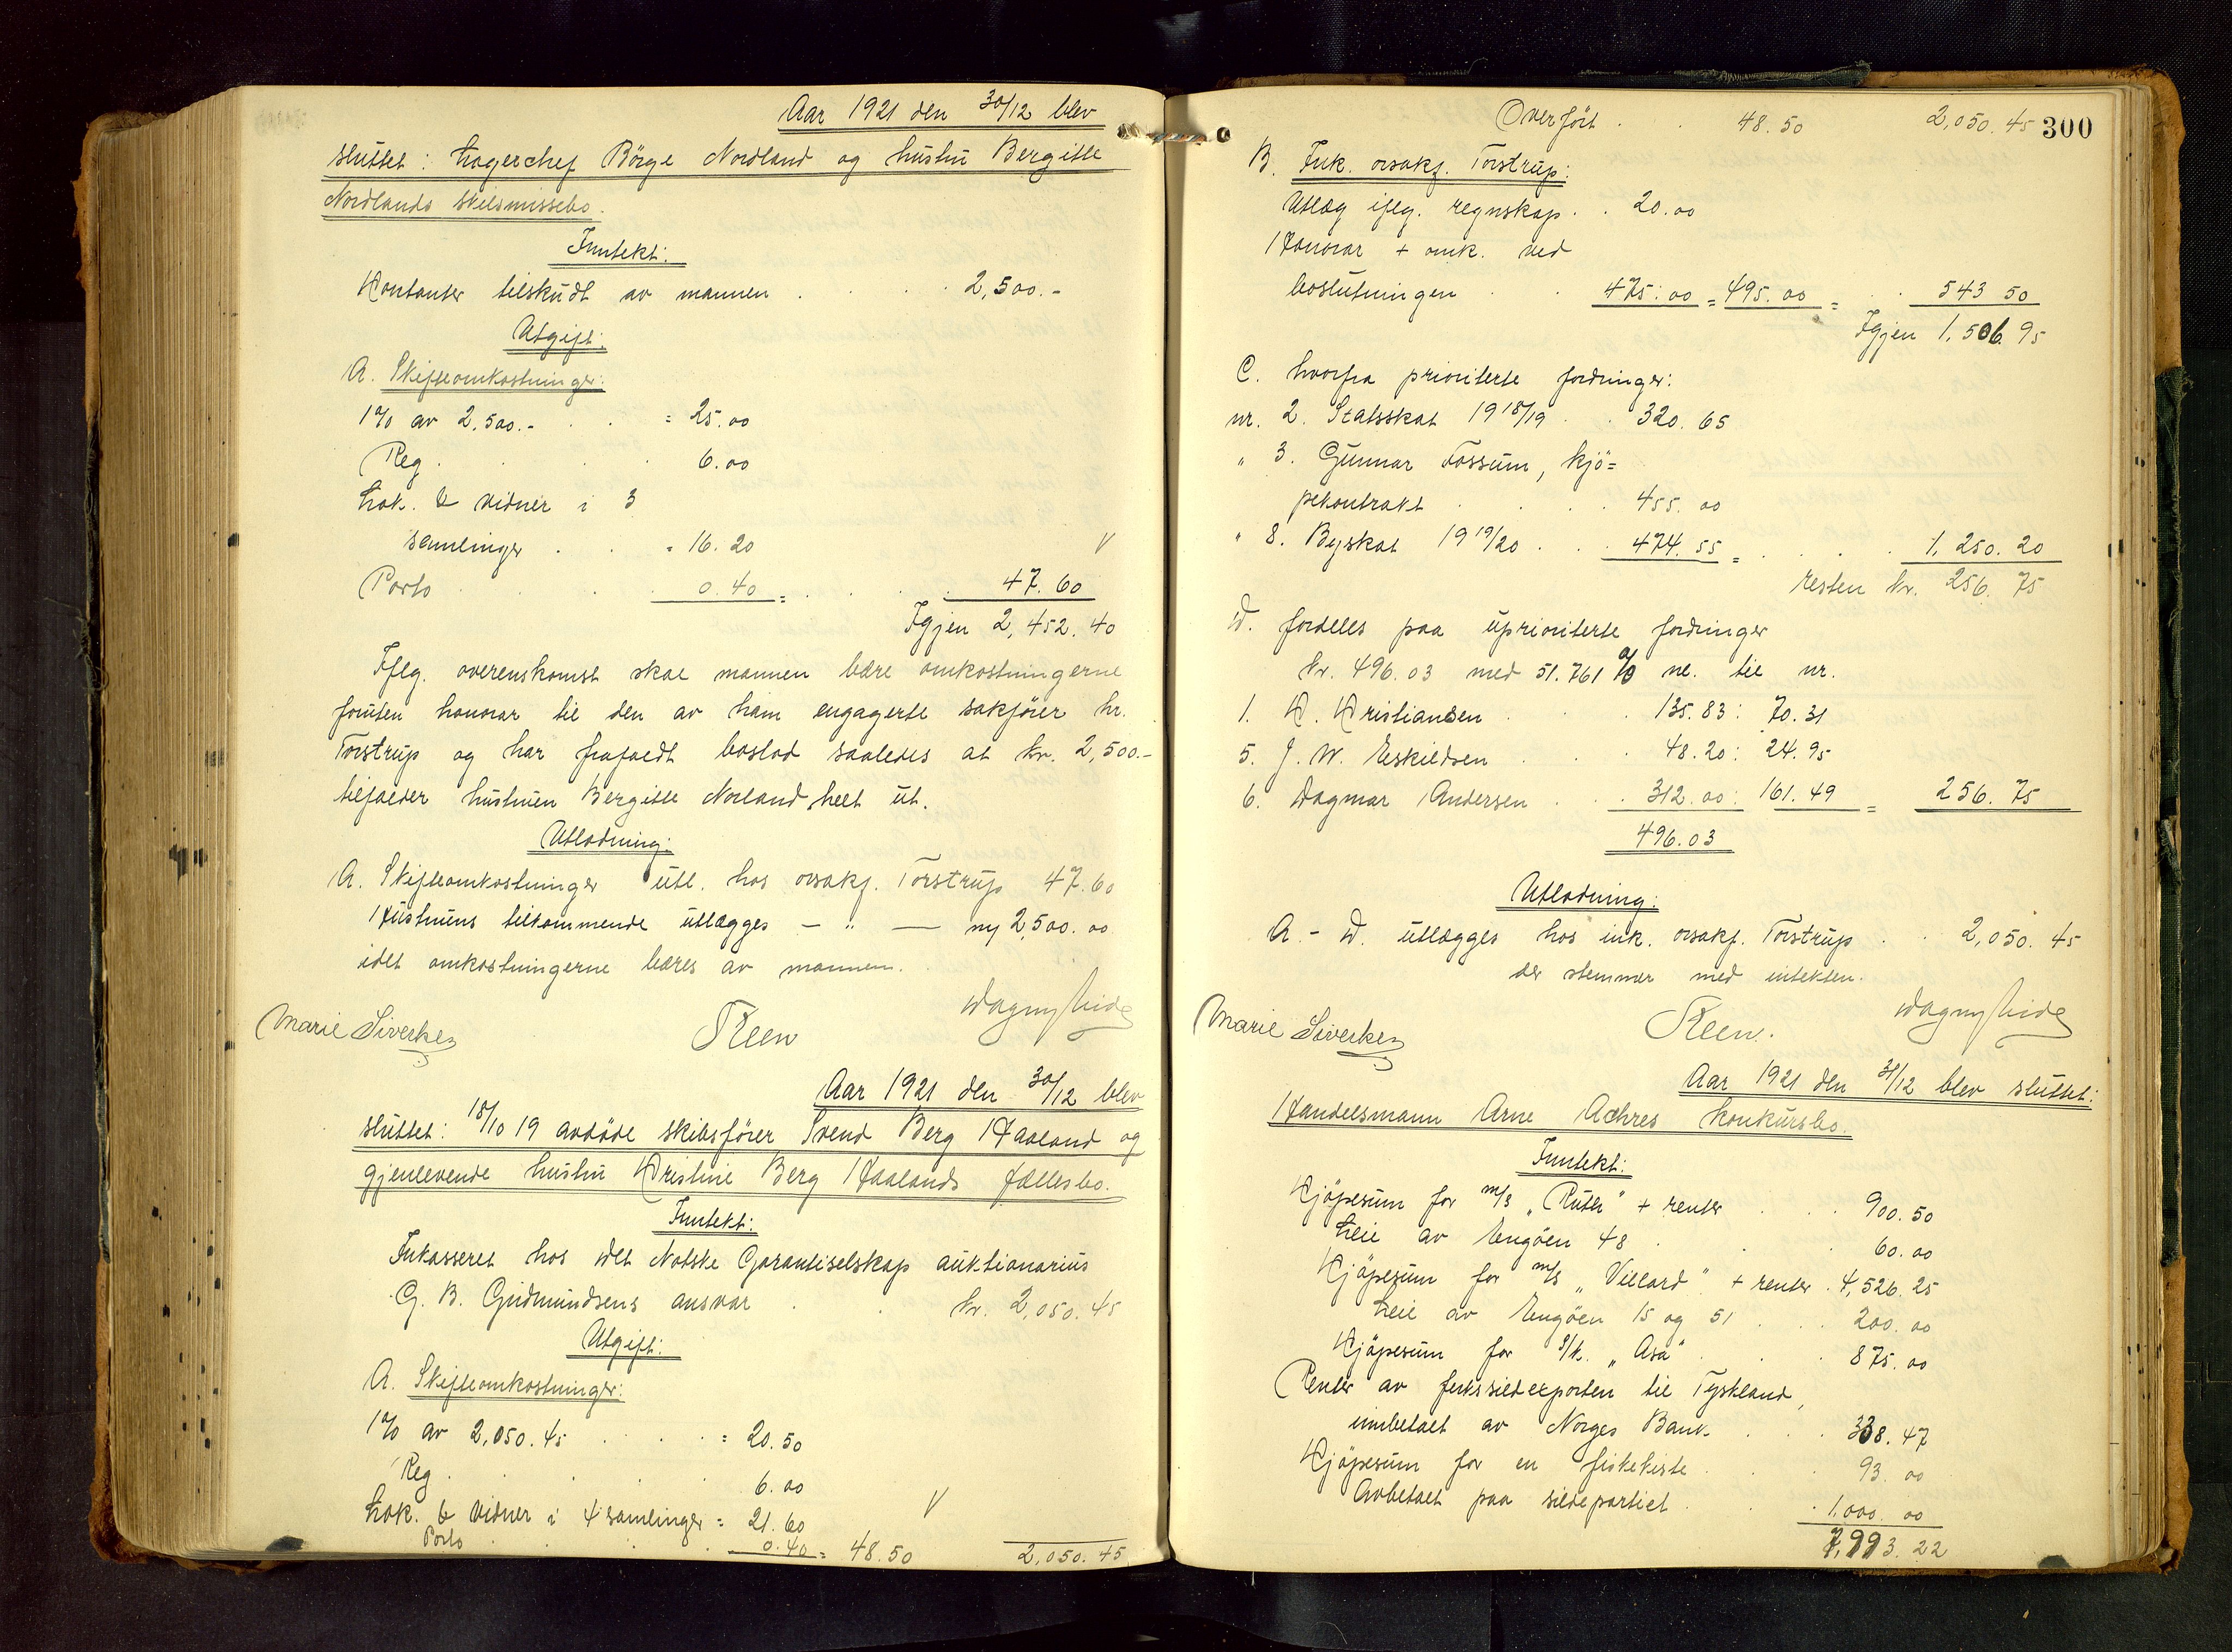 Aar 1921 den 30/12 blev
sluttet: Lagerchef Börge Nordland og hustru Bergitte
Nordlands skilsmissebo.
Inntekt:
Kontanter tilskudt av mannen . . . . 2,500.-
Utgift:
A. Skifteomkostninger:
1% av 2,500.- . . = 25.00
Reg. . . . 6.00
Lok. & vidner i 3
samlinger . . = 16.20 V
Porto . . . 0.40 = . . . 47.60
Igjen 2,452.40
Iflg. overenskomst skal mannen bære omkostningerne
foruten honorar til den av ham engagerte sakförer hr.
Torstrup og har frafaldt boslod saaledes at kr. 2,500.-
tilfalder hustruen Bergitte Norland helt ut.
Utlodning:
A. Skifteomkostninger utl. hos orsakf. Torstrup 47.60
Hustruens tilkommende utlægges — " — 2,500.00
idet omkostningerne bæres av mannen.
Marie Siverkes Steen Dagny
Aar 1921 den 30/12 blev
sluttet: 18/10 19 avdöde skibsförer Svend Berg Haaland og
gjenlevende hustru Kristine Berg Haalands fællesbo.
Inntekt:
Inkasseret hos Det Norske Garantiselskap auktionarius
G. B. Gudmundsens ansvar . . kr. 2,050.45
Utgift:
A. Skifteomkostninger:
1% av 2,050.45 . . . = 20.50
Reg. . . . 6.00
Lok. & vidner i 4 samlinger = 21.60 V
Porto . . . 0.40 = 48.50 2,050.45
Overfört . . 48.50 2,050.45 300
B. Ink. orsakf. Torstrup:
Utlæg iflg. regnskap . . 20.00
Honorar + omk. ved
boslutningen . . 475.00 = 495.00 = . . 543 50
Igjen 1,506.95
C. hvorfra prioriterte fordringer:
nr. 2. Statsskat 1918/19 . . 320.65
" 3. Gunnar Fossum, kjö=
pekontrakt . . . 455.00
" 8. Byskat 1919/20 . . 474.55 = . . . 1,250.20
resten kr. 256.75
D. fordeles paa uprioriterte fordringer
kr. 496.03 med 51.761% nl. til nr.
1. K. Kristiansen . . . 135.83: 70.31
5. J. W. Eskildsen . . . 48.20: 24.95
6. Dagmar Andersen . . . 312.00: 161.49 = 256.75
496.03
Utlodning:
A.- D. utlægges hos ink. orsakf. Torstrup . . 2,050.45
der stemmer med intekten.
Marie Siverkes Steen. Dagny
Aar 1921 den 31/12 blev sluttet:
Handelsmann Arne Achres konkursbo.
Inntekt:
Kjöpesum for m/s "Ruth" + renter . . 900.50
Leie av Engöen 48 . . . 60.00
Kjöpesum for m/s "Villard" + renter . 4,526.25
Leie av Engöen 15 og 51 . . . 200.00
Kjöpesum for s/k. "Asa" . . . 875.00
Renter av ferksildexporten til Tyskland,
innbetalt av Norges Bank . . . 338.47
Kjöpesum for en fiskekiste . . . 93.00
Avbetalt paa sildepartiet . . . 1,000.00
7,993.22